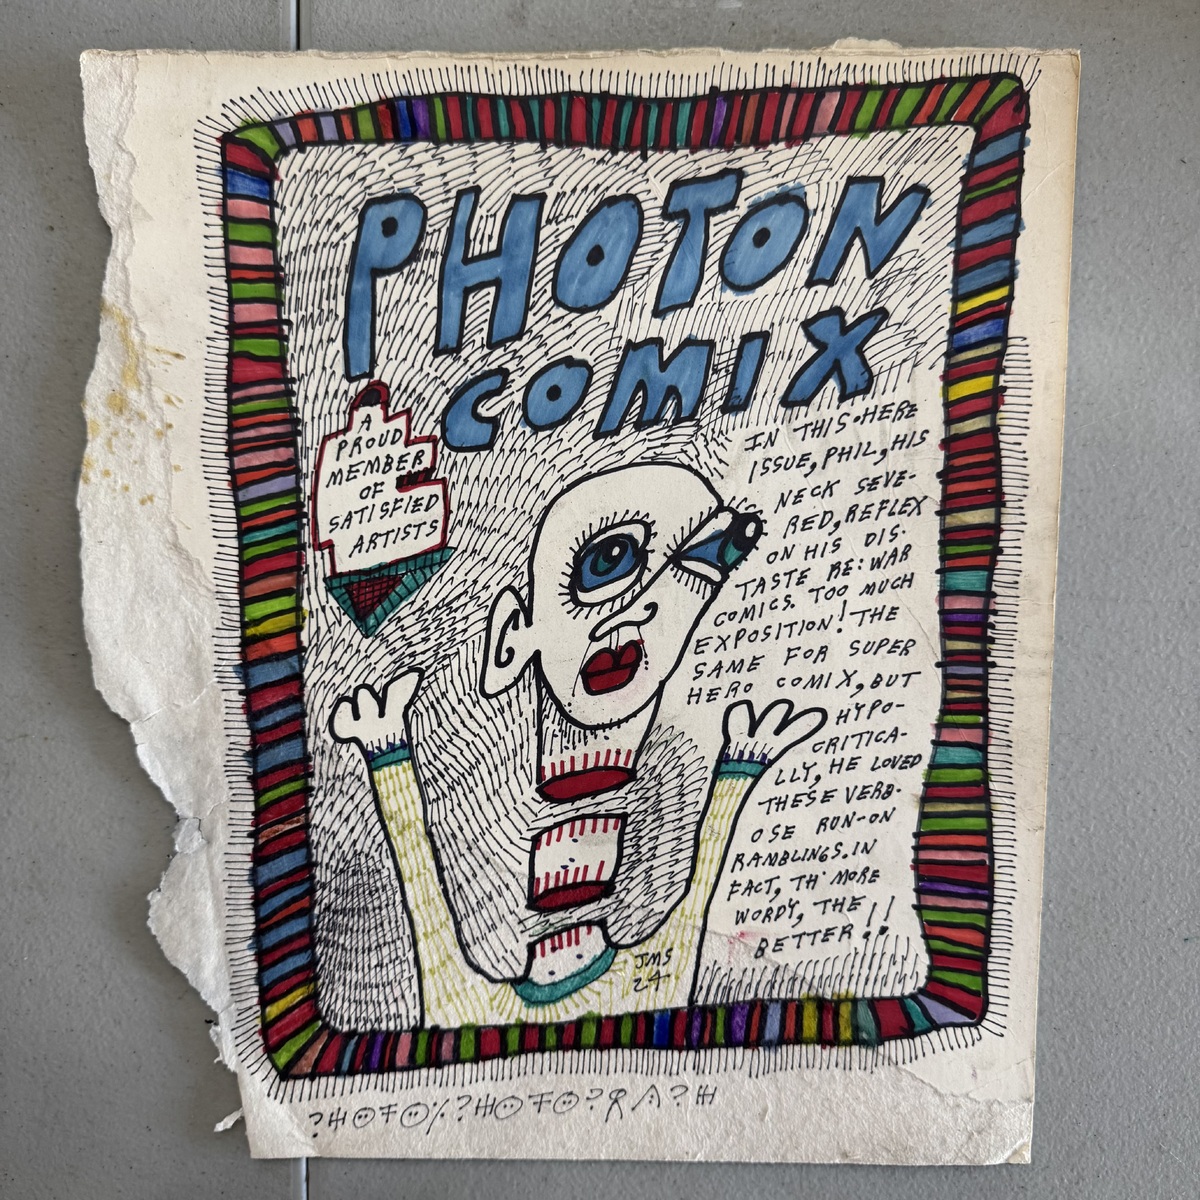 PHOTON
COMIX
A
PROUD
MEMBER
OF
SATISFIED
ARTISTS
IN THIS HERE
ISSUE, PHIL, HIS
NECK SEVE-
RED, REFLEX
ON HIS DIS-
TASTE RE: WAR
COMICS. TOO MUCH
EXPOSITION! THE
SAME FOR SUPER
HERO COMIX, BUT
HYPO-
CRITICA-
LLY, HE LOVED
THESE VERB-
OSE RUN-ON
RAMBLINGS. IN
FACT, TH' MORE
WORDY, THE
BETTER!!
JMS
24